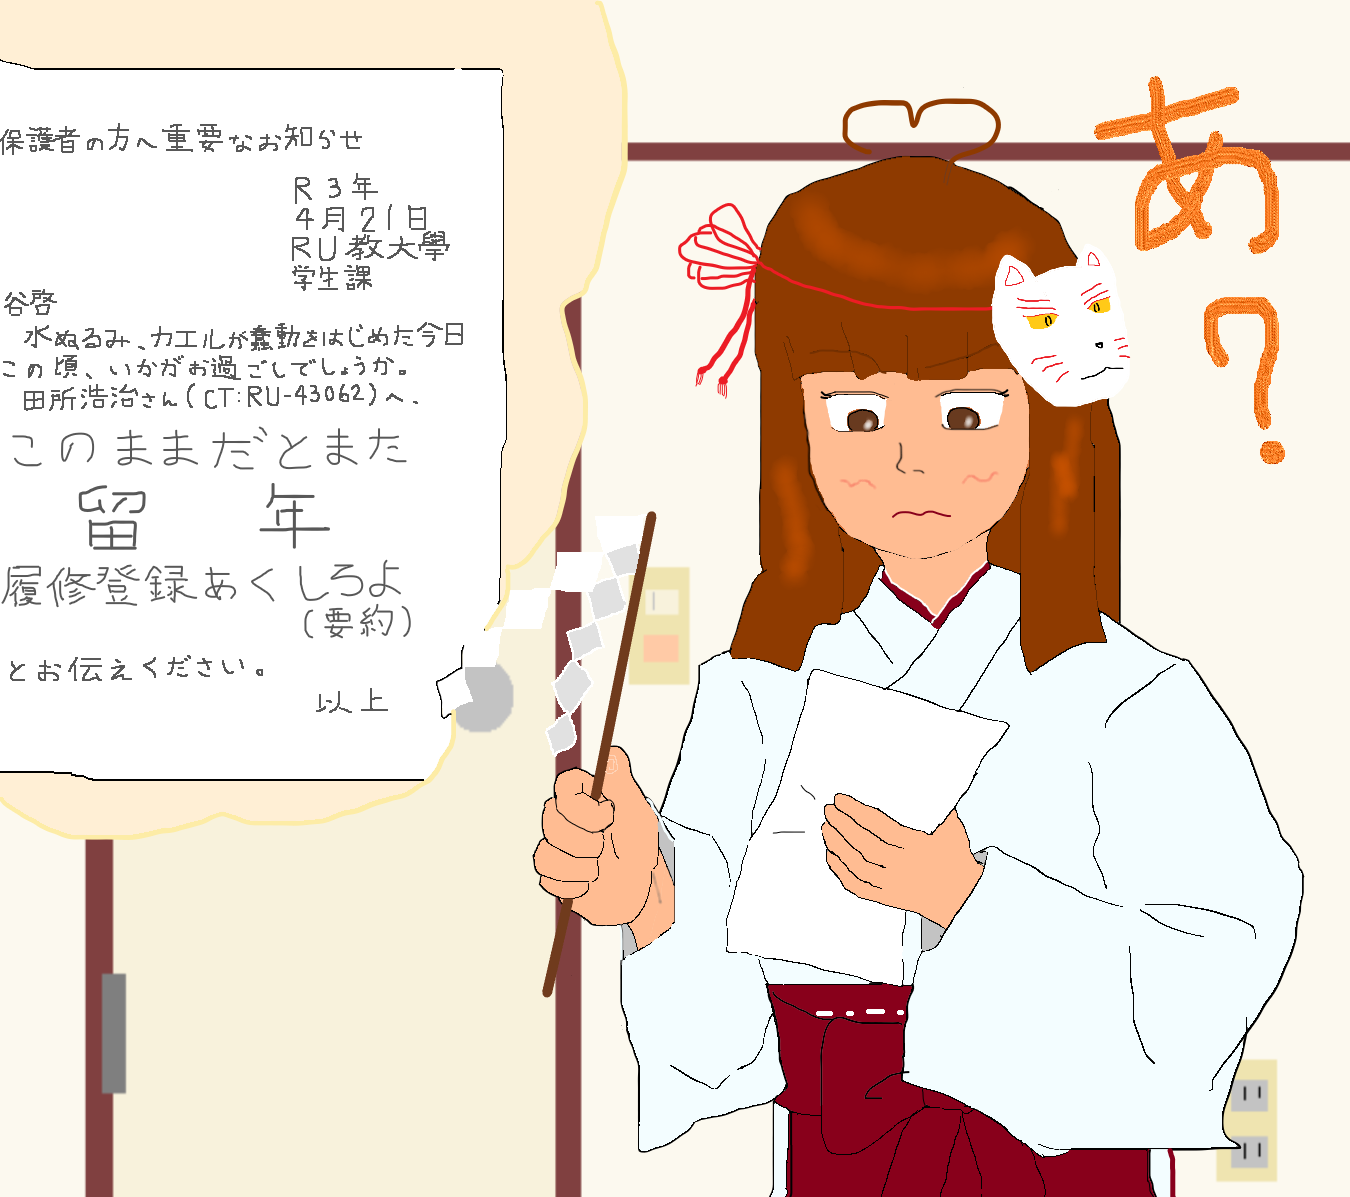 保護者の方へ重要なお知らせ
R3年
4月21日
RU教大學
学生課
谷啓
水ぬるみ、カエルが蠢動をはじめた今日
この頃、いかがお過ごしでしょうか。
田所浩治さん(CT:RU-43062)へ、
このままだとまた
留年
履修登録あくしろよ
(要約)
とお伝えください。
以上
あ?